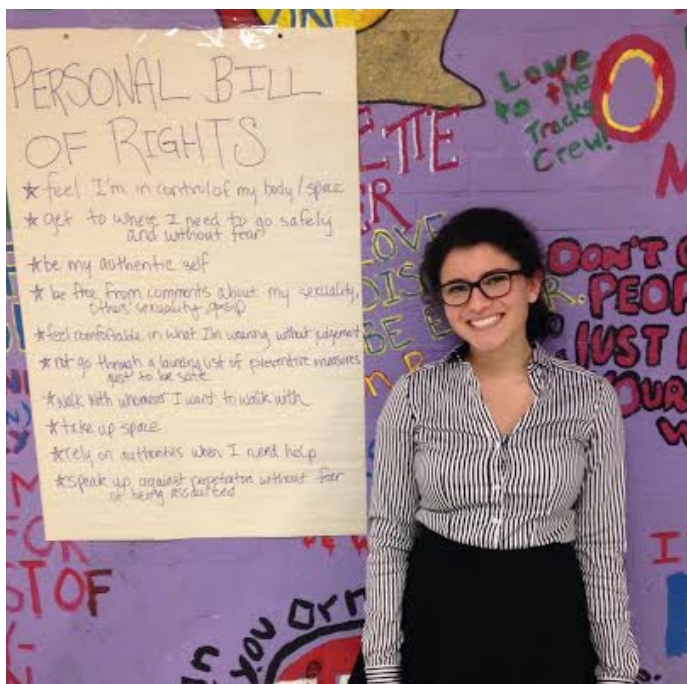 PERSONAL BILL
OF RIGHTS
★ feel I'm in control of my body/space
★ get to where I need to go safely
and without fear
★ be my authentic self
★ be free from comments about my sexuality,
others' sexuality, gossip
★ feel comfortable in what I'm wearing without judgement
★ not go through a laundry list of preventive measures
just to be safe
★ walk with whomever I want to walk with
★ take up space
★ rely on authorities when I need help
★ speak up against perpetrators without fear
of being assaulted
Love
to the
Tracks
Crew!
LOVE
DIS
BE
DON'T
PEOP
JUST
OUR
FOR
ST OF
you